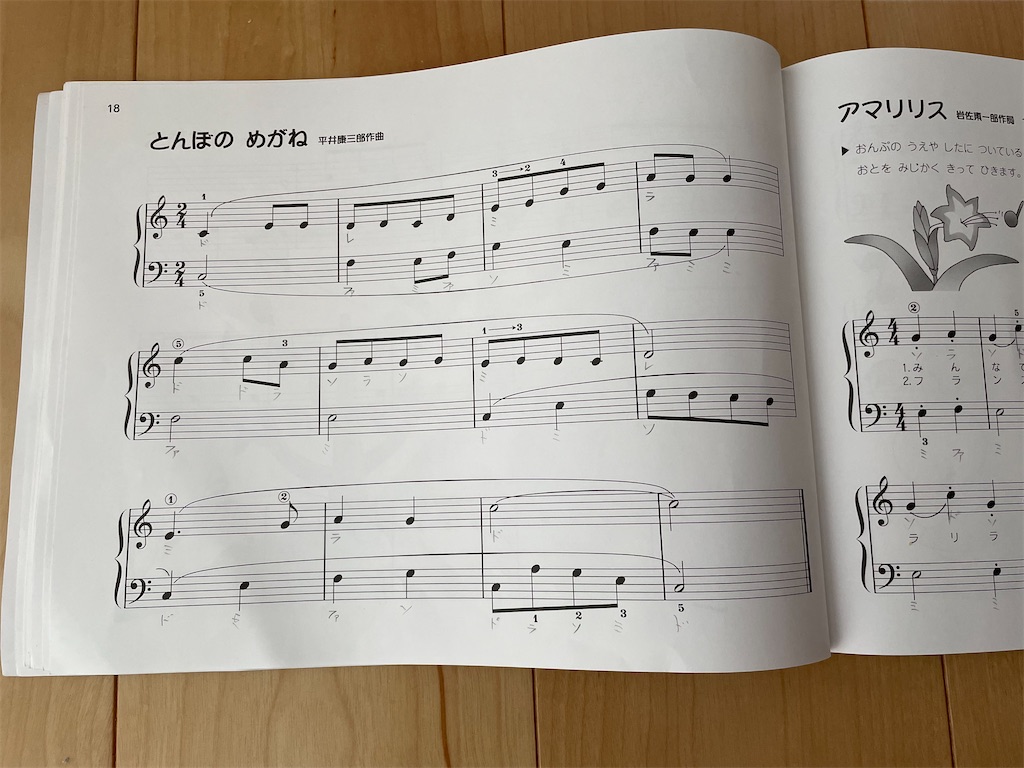 18
とんぼの めがね 平井康三郎作曲
1 3→2 4
2 4
ド レ ミ ラ
2 4
ファ ミ ファ ソ ミ ファ ミ ミ
5
ド
⑤ 3 1→3
ド ド ラ ソ ラ ソ ミ レ
ファ ミ ド ミ ソ
① ②
ミ ラ ド
ド ファ ソ ド ラ ソ ミ ド
1 2 3 5
アマリリス 岩佐
▶ おんぷの うえや したに ついている
おとを みじかく きって ひきます。
② 5
4 4
ソ ラ ソ
1.み ん な で
2.フ ラ ン
4 4
3
ミ ファ ミ
ソ ド ソ
ラ リ ラ
ミ ミ